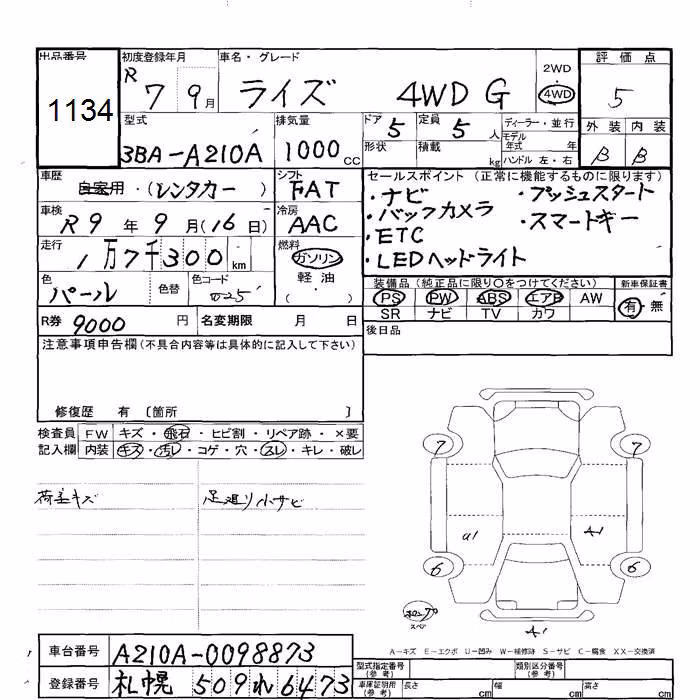 出品番号 初度登録年月 車名・グレード 2WD 評価点
1134 R 7 9月 ライズ 4WD G 4WD 5
型式 排気量 ドア 5 定員 5人 ディーラー・並行 外装 内装
3BA-A210A 1000cc 形状 積載 kg モデル年式 年 B B
ハンドル 左・右
車歴 自家用・(レンタカー) シフト FAT セールスポイント (正常に機能するものに限ります)
・ナビ ・プッシュスタート
車検 R9年9月(16日) 冷房 AAC ・バックカメラ ・スマートキー
・ETC
走行 1万7千300km 燃料 ガソリン ・LEDヘッドライト
軽油・
色 パール 色替 色コード 装備品 (純正品に限り○をつけてください) 新車保証書
PS PW ABS エアB AW 有・無
SR ナビ TV カワ
R券 9000円 名変期限 月 日 後日品
注意事項申告欄(不具合内容等は具体的に記入して下さい)
修復歴 有 〔箇所 〕
検査員 FW キズ・飛石・ヒビ割・リペア跡・×要
記入欄 内装 キズ・汚レ・コゲ・穴・スレ・キレ・破レ
荷差キズ 足廻り小サビ
7 7
U1 A1
6 6
スペア
A1
A-キズ E-エクボ U-凹み W-補修跡 S-サビ C-腐食 XX-交換済
車台番号 A210A-0098873 型式指定番号(参考) 類別区分番号(参考)
登録番号 札幌 509 れ 6473 車庫証明用(参考) 長さ cm 幅 cm 高さ cm